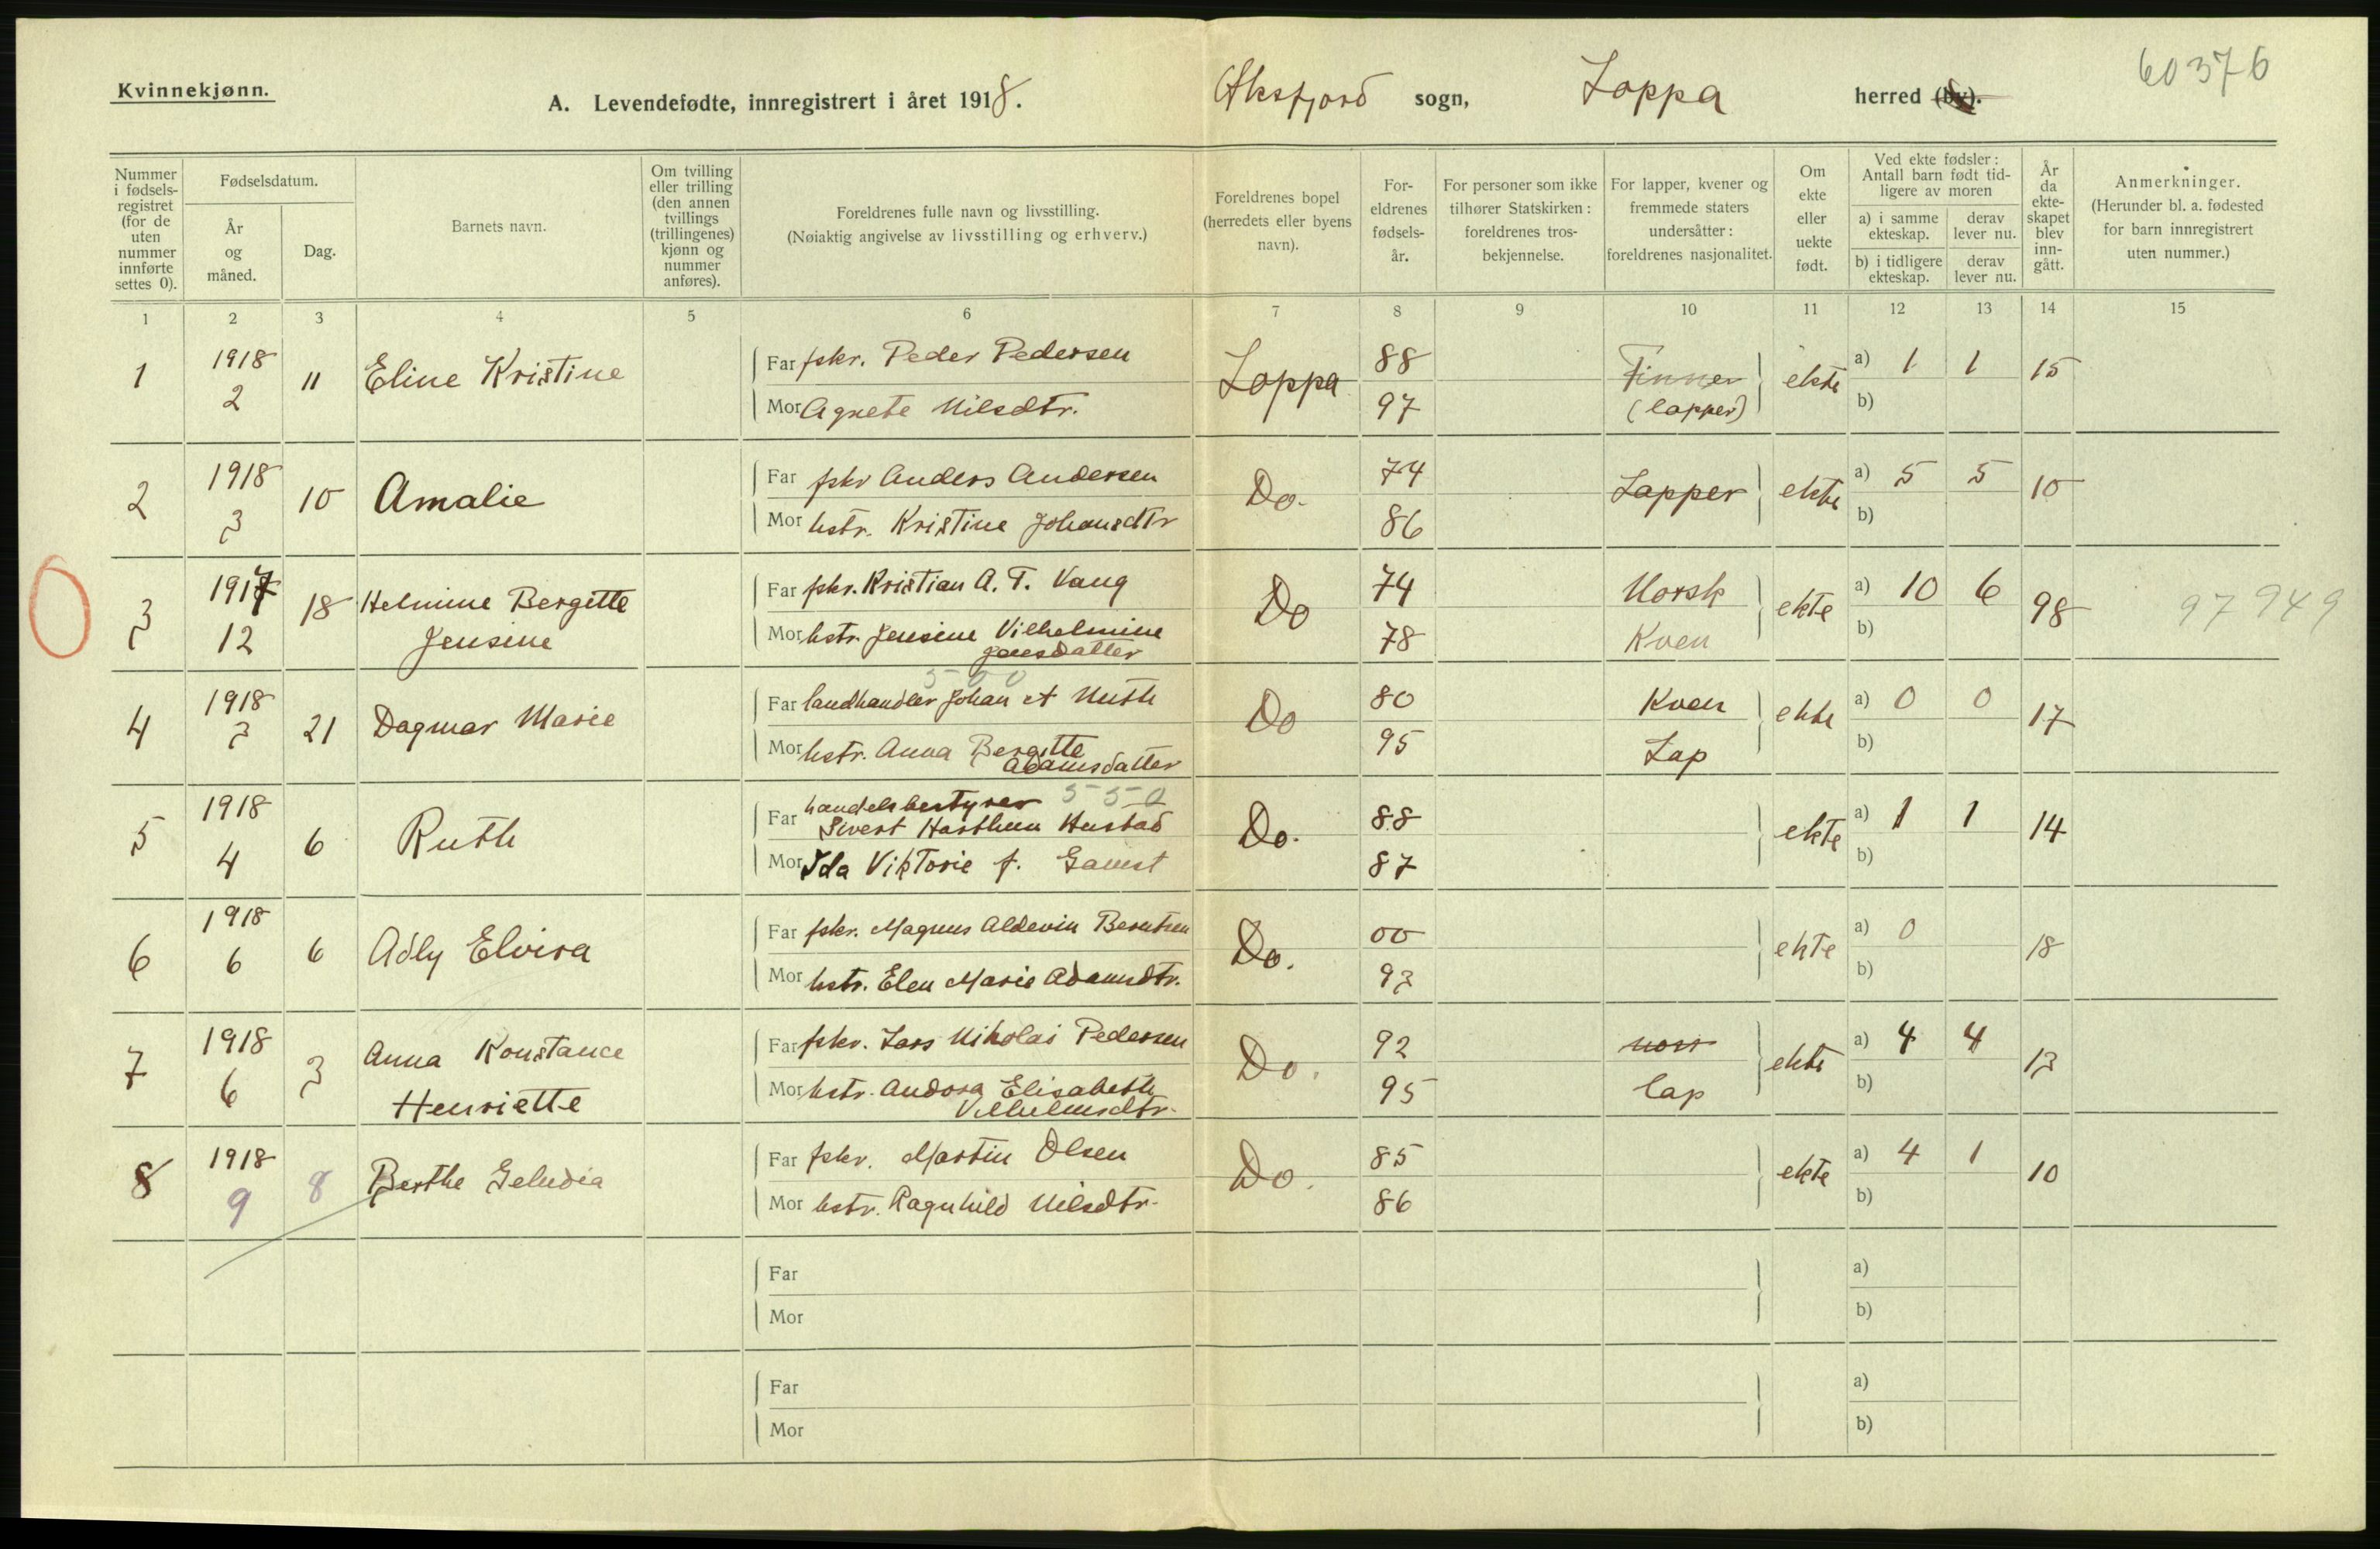 Kvinnekjønn.
A. Levendefødte, innregistrert i året 1918.
Øksfjord sogn, Loppa herred (by).
60376
Nummer i fødsels-registret (for de uten nummer innførte settes 0).
Fødselsdatum.
År og måned.
Dag.
Barnets navn.
Om tvilling eller trilling (den annen tvillings (trillingenes) kjønn og nummer anføres).
Foreldrenes fulle navn og livsstilling.
(Nøiaktig angivelse av livsstilling og erhverv.)
Foreldrenes bopel (herredets eller byens navn).
For-eldrenes fødsels-år.
For personer som ikke tilhører Statskirken: foreldrenes tros-bekjennelse.
For lapper, kvener og fremmede staters undersåtter: foreldrenes nasjonalitet.
Om ekte eller uekte født.
Ved ekte fødsler: Antall barn født tid-ligere av moren
a) i samme ekteskap.
derav lever nu.
b) i tidligere ekteskap.
derav lever nu.
År da ekte-skapet blev inn-gått.
Anmerkninger.
(Herunder bl. a. fødested for barn innregistrert uten nummer.)
1 2 3 4 5 6 7 8 9 10 11 12 13 14 15
1 1918 2 11 Eline Kristine
Far fskr. Peder Pedersen Loppa 88 Finner ekte a) 1 1 15
Mor Agnete Nilsdtr. 97 (lapper) b)
2 1918 3 10 Amalie
Far fskr Anders Andersen Do. 74 Lapper ekte a) 5 5 10
Mor hstr. Kristine Johansdtr 86 b)
3 1917 12 18 Helmine Bergitte
Jensine
Far fskr. Kristian A. T. Vang Do 74 Norsk ekte a) 10 6 98 97949
Mor hstr. Jensine Vilhelmine 78 Kven b)
Jensdatter
500
4 1918 3 21 Dagmar Marie
Far landhandler Johan A Muth Do 80 Kven ekte a) 0 0 17
Mor hstr. Anna Bergitte 95 Lap b)
Adamsdatter
5 1918 4 6 Ruth
handelsbestyrer 550
Far Sivert Hustad Do. 88 ekte a) 1 1 14
Mor Ida Viktorie f. Gamst 87 b)
6 1918 6 6 Adly Elvira
Far fskr. Magnus Aldevin Berntsen Do. 00 ekte a) 0 18
Mor hstr. Elen Marie Adamsdtr. 93 b)
7 1918 6 3 Anna Konstance
Henriette
Far fskr. Lars Nikolai Pedersen Do. 92 norsk ekte a) 4 4 13
Mor hstr. Andora Elisabeth 95 lap b)
Vilhelmsdtr.
8 1918 9 8 Berthe Geludia
Far fskr. Martin Olsen Do. 85 ekte a) 4 1 10
Mor hstr. Ragnhild Nilsdtr. 86 b)
Far a)
Mor b)
Far a)
Mor b)